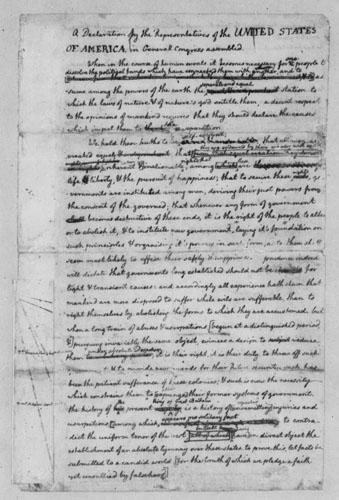 A Declaration by the Representatives of the UNITED STATES
OF AMERICA, in General Congress assembled.
When in the course of human events it becomes necessary for one people to
dissolve the political bands which have connected them with another, and to
assume among the powers of the earth the separate and equal station to
which the laws of nature & of nature's god entitle them, a decent respect
to the opinions of mankind requires that they should declare the causes
which impel them to the separation.
We hold these truths to be self-evident that all men are
created equal
rights; that
life, & liberty, & the pursuit of happiness; that to secure these rights, go
-vernments are instituted among men, deriving their just powers from
the consent of the governed; that whenever any form of government
becomes destructive of these ends, it is the right of the people to alter
or to abolish it, & to institute new government, laying it's foundation on
such principles & organising it's powers in such form, as to them shall
seem most likely to effect their safety & happiness. prudence indeed
will dictate that governments long established should not be changed for
light & transient causes: and accordingly all experience hath shewn that
mankind are more disposed to suffer while evils are sufferable, than to
right themselves by abolishing the forms to which they are accustomed. but
when a long train of abuses & usurpations [begun at a distinguished period,
& pursuing invariably the same object, evinces a design to reduce
them under absolute Despotism it is their right, it is their duty, to throw off such
& to provide new guards for their future security. such has
been the patient sufferance of these colonies; & such is now the necessity
which constrains them to [expunge] their former systems of government.
the history of the present king of Great Britain is a history of unremitting injuries and
usurpations, among which appears no solitary fact to contra-
-dict the uniform tenor of the rest but all have in direct object the
establishment of an absolute tyranny over these states. to prove this, let facts be
submitted to a candid world [for the truth of which we pledge a faith
yet unsullied by falsehood]